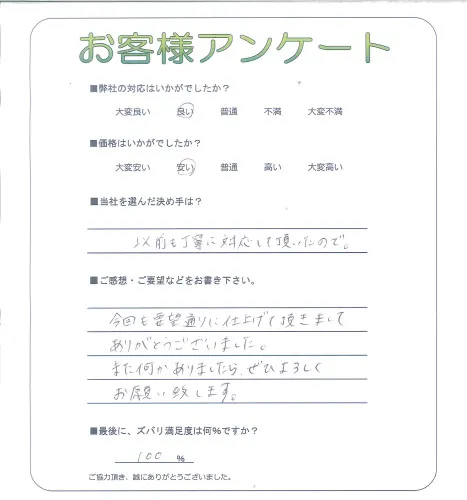 お客様アンケート
■弊社の対応はいかがでしたか？
大変良い 良い 普通 不満 大変不満
■価格はいかがでしたか？
大変安い 安い 普通 高い 大変高い
■当社を選んだ決め手は？
以前も丁寧に対応して頂いたので。
■ご感想・ご要望などをお書き下さい。
今回も要望通りに仕上げて頂きまして
ありがとうございました。
また何かありましたら、ぜひよろしく
お願い致します。
■最後に、ズバリ満足度は何%ですか？
100 %
ご協力頂き、誠にありがとうございました。